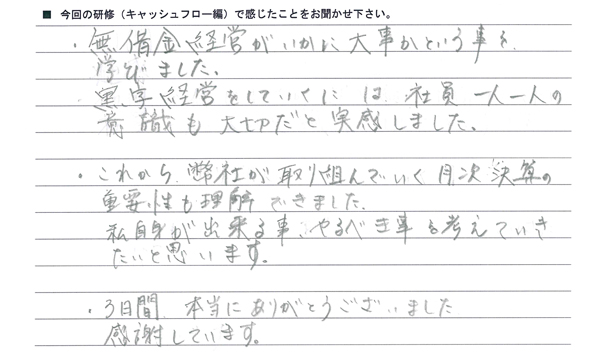 ■ 今回の研修（キャッシュフロー編）で感じたことをお聞かせ下さい。
・無借金経営がいかに大事かという事を
学びました。
黒字経営をしていくには、社員一人一人の
意識も大切だと実感しました。
・これから、弊社が取り組んでいく月次決算の
重要性も理解できました。
私自身が出来る事、やるべき事を考えていき
たいと思います。
・3日間、本当にありがとうございました
感謝しています。